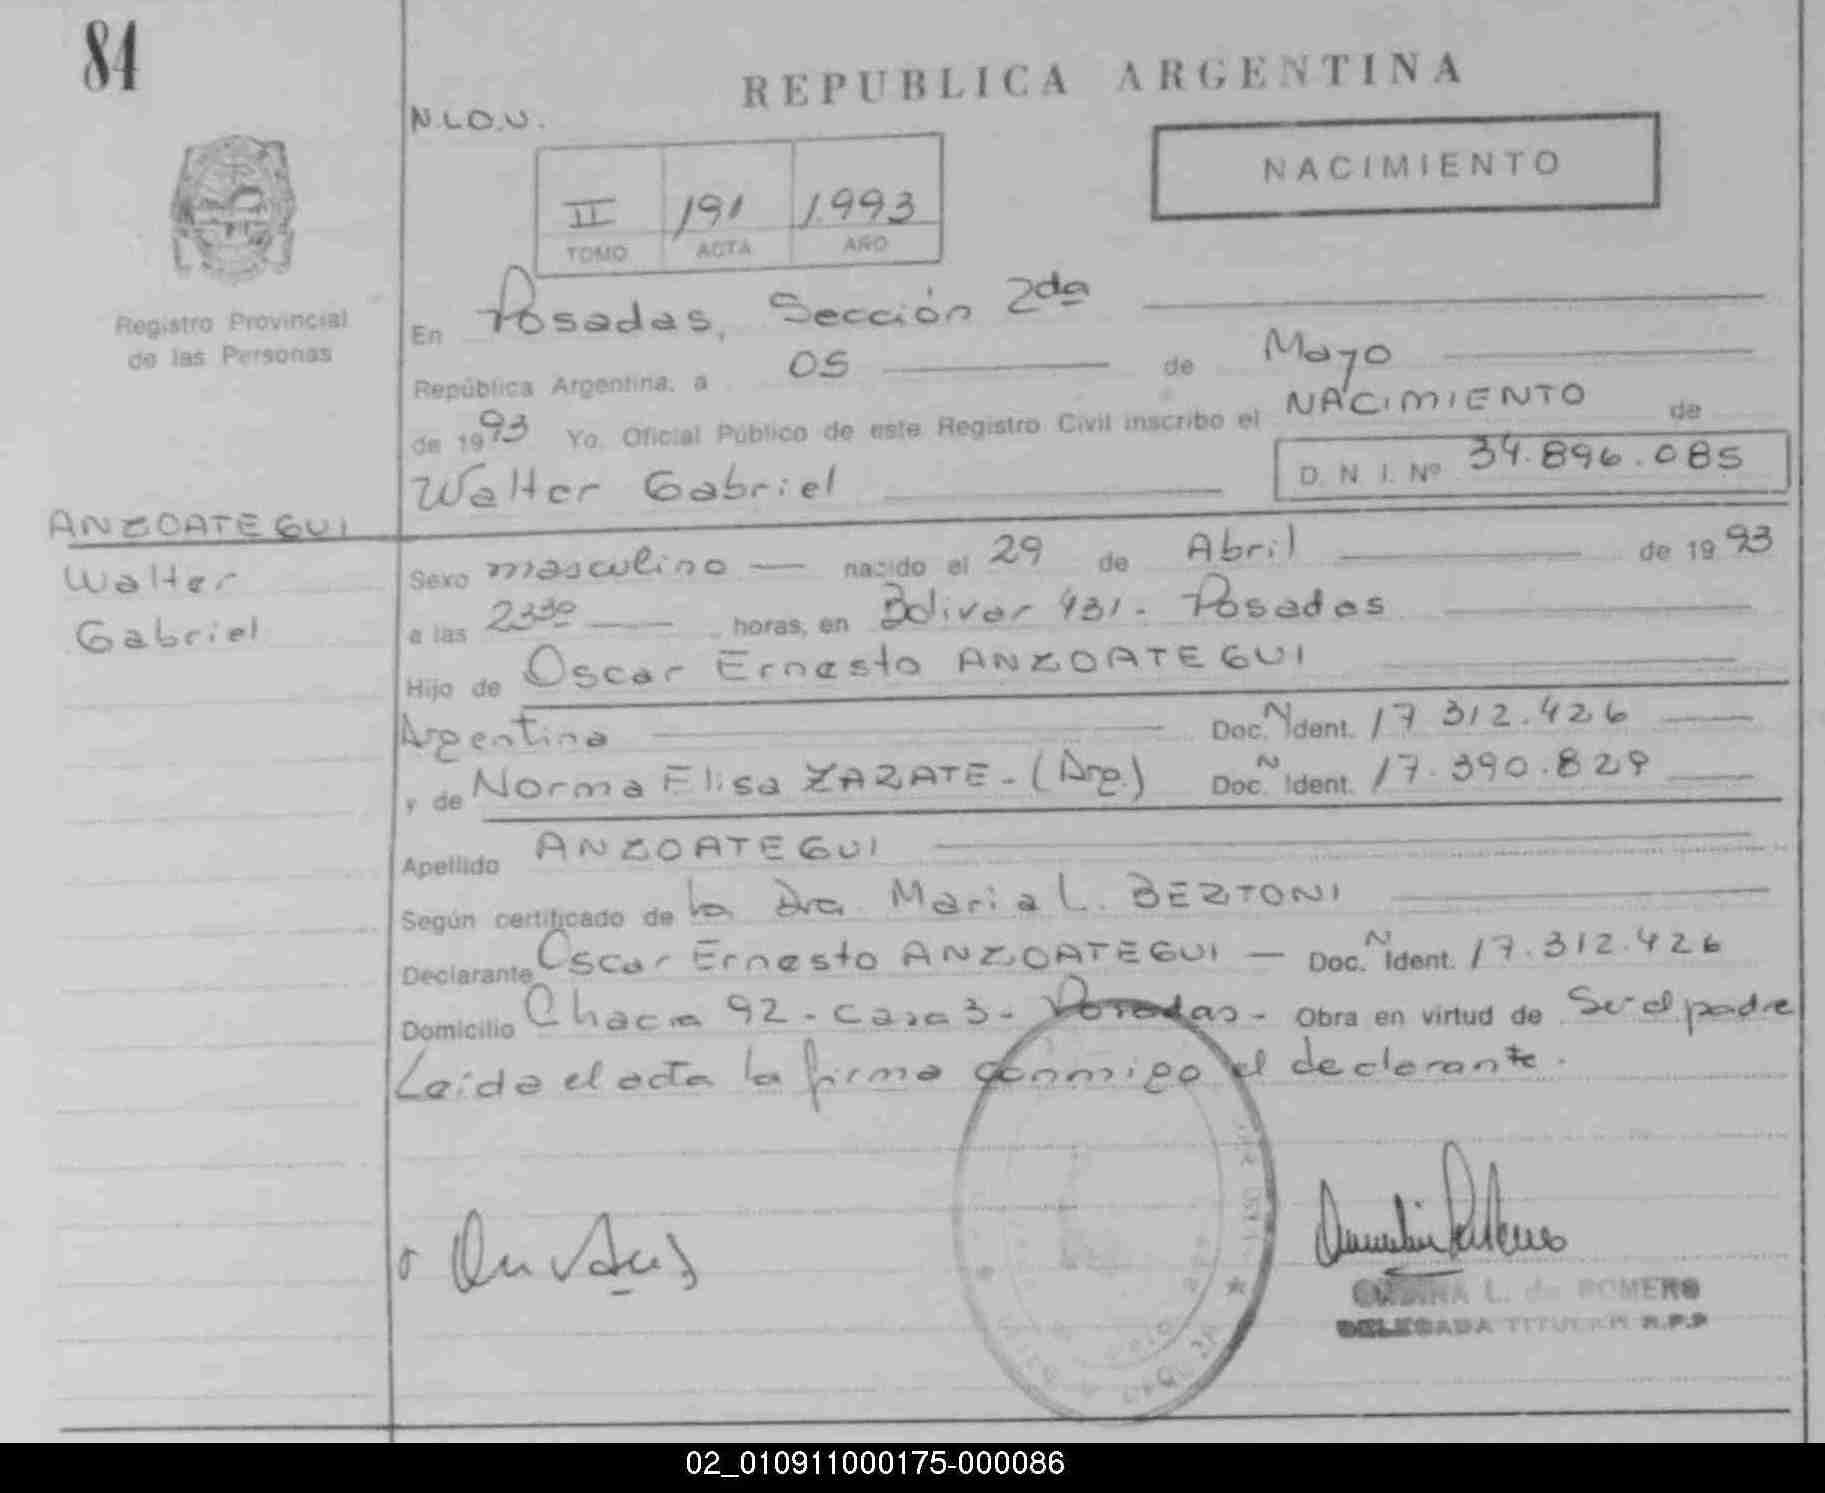 84
REPUBLICA ARGENTINA
N.L.O.U.
NACIMIENTO
II 191 1993
TOMO ACTA AÑO
Registro Provincial
de las Personas
En Posadas, Sección 2da
República Argentina, a 05 de Mayo
de 1993 Yo, Oficial Público de este Registro Civil inscribo el NACIMIENTO de
Walter Gabriel D. N. I. Nº 34.896.085
ANZOATEGUI
Walter
Gabriel
Sexo masculino nacido el 29 de Abril de 1993
a las 23:30 horas, en Bolivar 431 - Posadas
Hijo de Oscar Ernesto ANZOATEGUI
Argentino Doc. N Ident. 17 312.426
y de Norma Elisa ZARATE - (Arg.) Doc. N Ident. 17.390.829
Apellido ANZOATEGUI
Según certificado de la Dra. Maria L. BERTONI
Declarante Oscar Ernesto ANZOATEGUI — Doc. N Ident. 17.312.426
Domicilio Chacra 92 - Casa 3 - Posadas - Obra en virtud de Ser el padre
Leida el acta la firma conmigo el declarante.
L. de ROMERO
DELEGADA TITULAR R.P.P
02_010911000175-000086